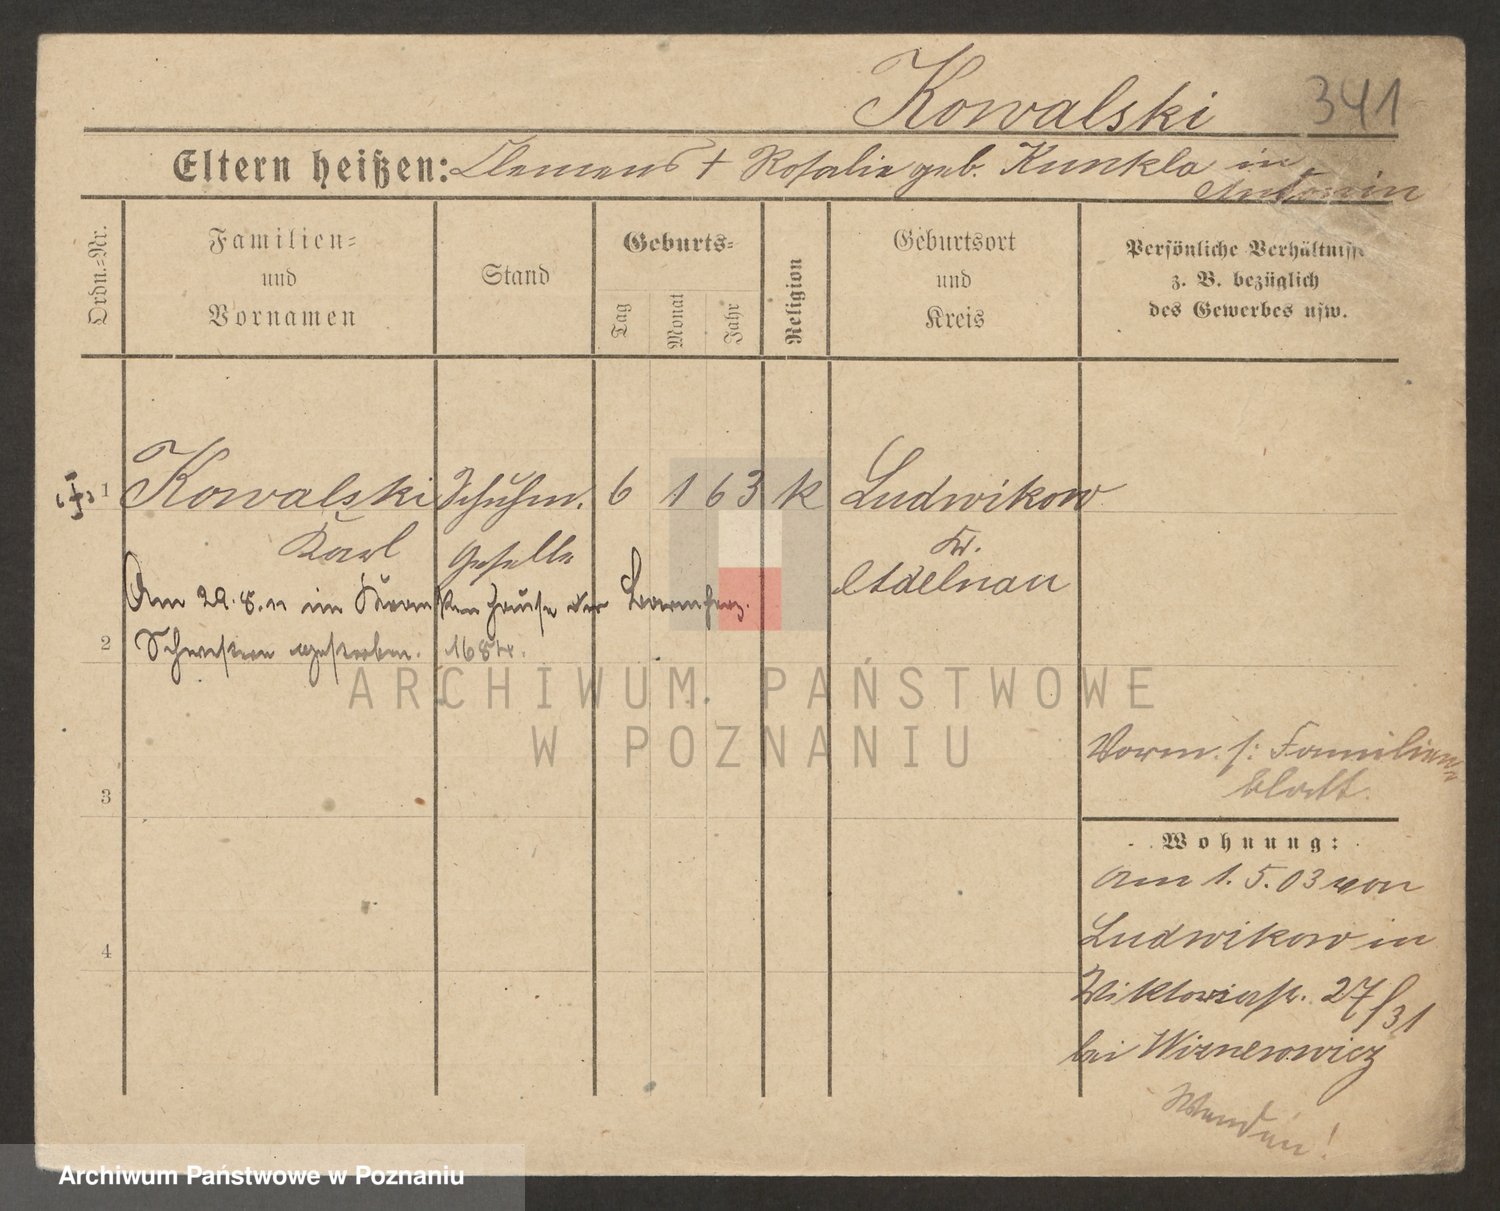 Kowalski 341
Eltern heißen: Clemens + Rosalie geb. Kunkla in
Antonin
Ordn.-Nr.
Familien-
und
Vornamen
Stand
Geburts-
Tag
Monat
Jahr
Religion
Geburtsort
und
Kreis
Persönliche Verhältnisse
z. B. bezüglich
des Gewerbes usw.
1 Kowalski Schuhm. 6 1 63 k Ludwikow
Karl geselle Kr.
Adelnau
Am 29.8.11 im Krankenhause der Barmherz.
2 Schwestern gestorben. 1654.
ARCHIWUM PAŃSTWOWE
W POZNANIU
Vorm. s: Familien-
blatt.
3
Wohnung:
Am 1. 5. 03 von
Ludwikow in
4
Wiktoriastr. 27/31
bei Wiznerowicz
Wenden!
Archiwum Państwowe w Poznaniu